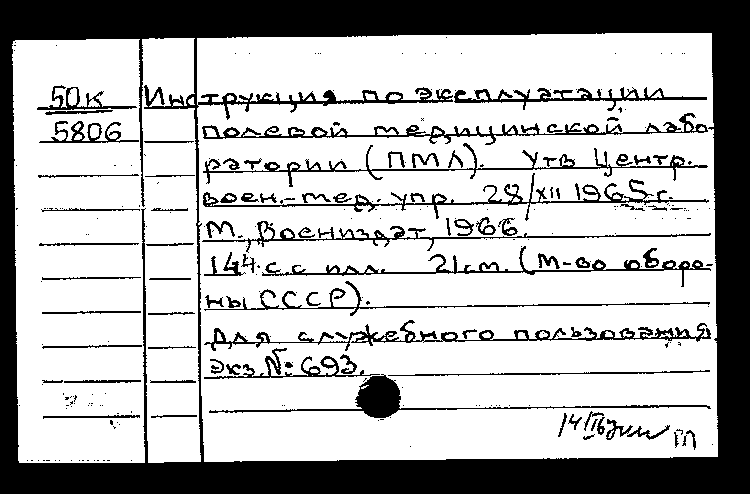 50к Инструкция по эксплуатации
5806 полевой медицинской лабо-
ратории (ПМЛ). Утв Центр.
воен.-мед. упр. 28/XII 1965 г.
М., Воениздат, 1966.
144 с. с илл. 21 см. (М-во оборо-
ны СССР).
Для служебного пользования.
Экз. №: 693.